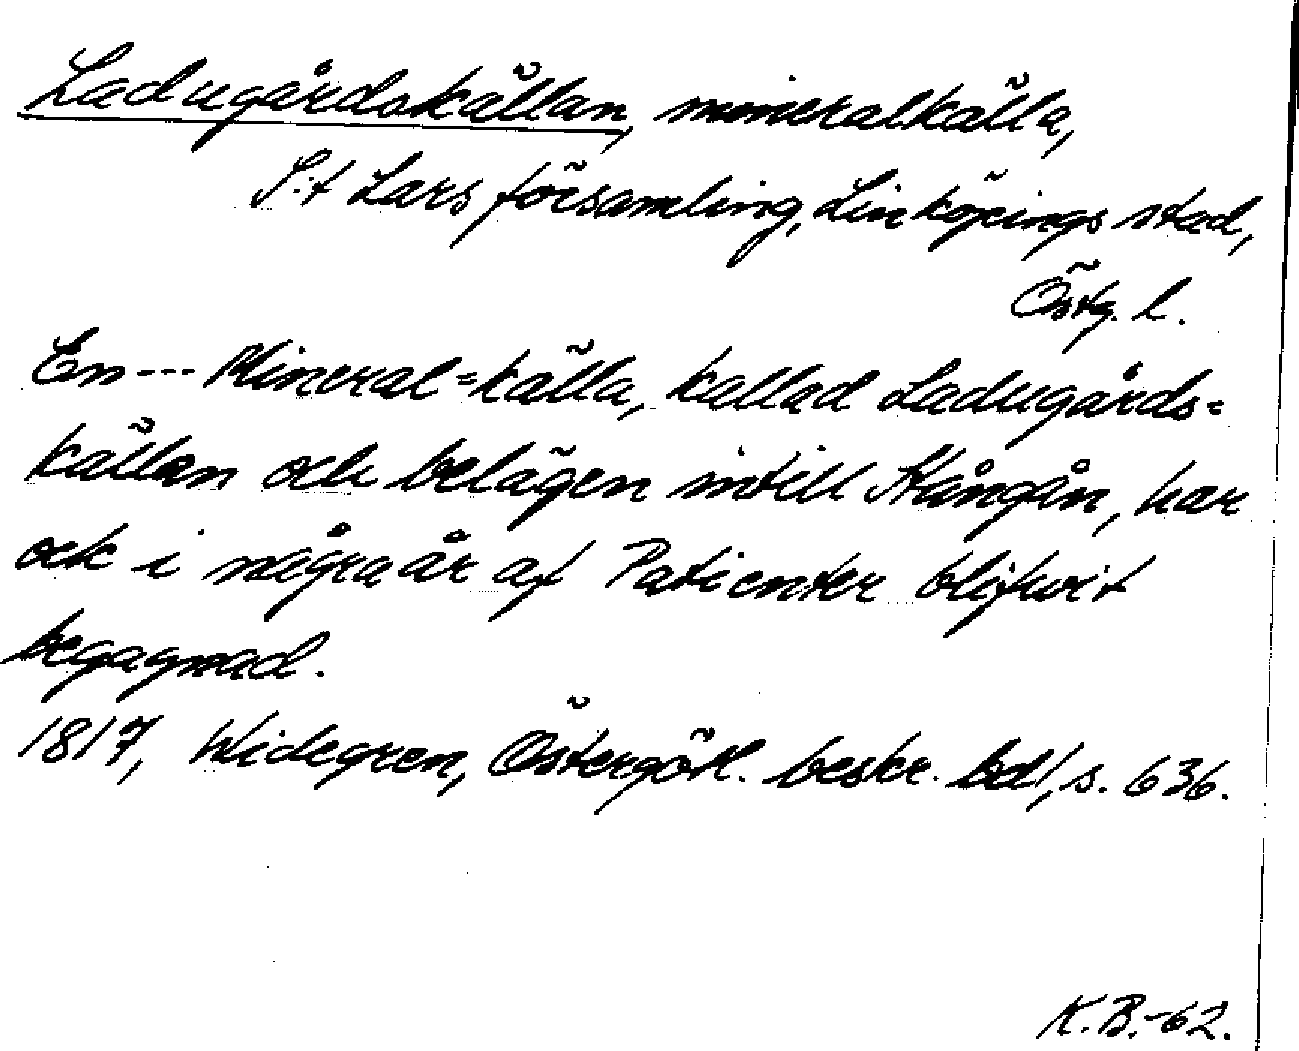 Ladugårdskällan, mineralkälla,
S:t Lars församling, Linköpings stad,
Östg. l.
En --- Mineral=källa, kallad Ladugårds=
källan och belägen intill Stångån, har
ock i några år af Patienter blifwit
begagnad.
1817, Widegren, Östergötl. beskr. bd 1, s. 636.
K.B.-62.